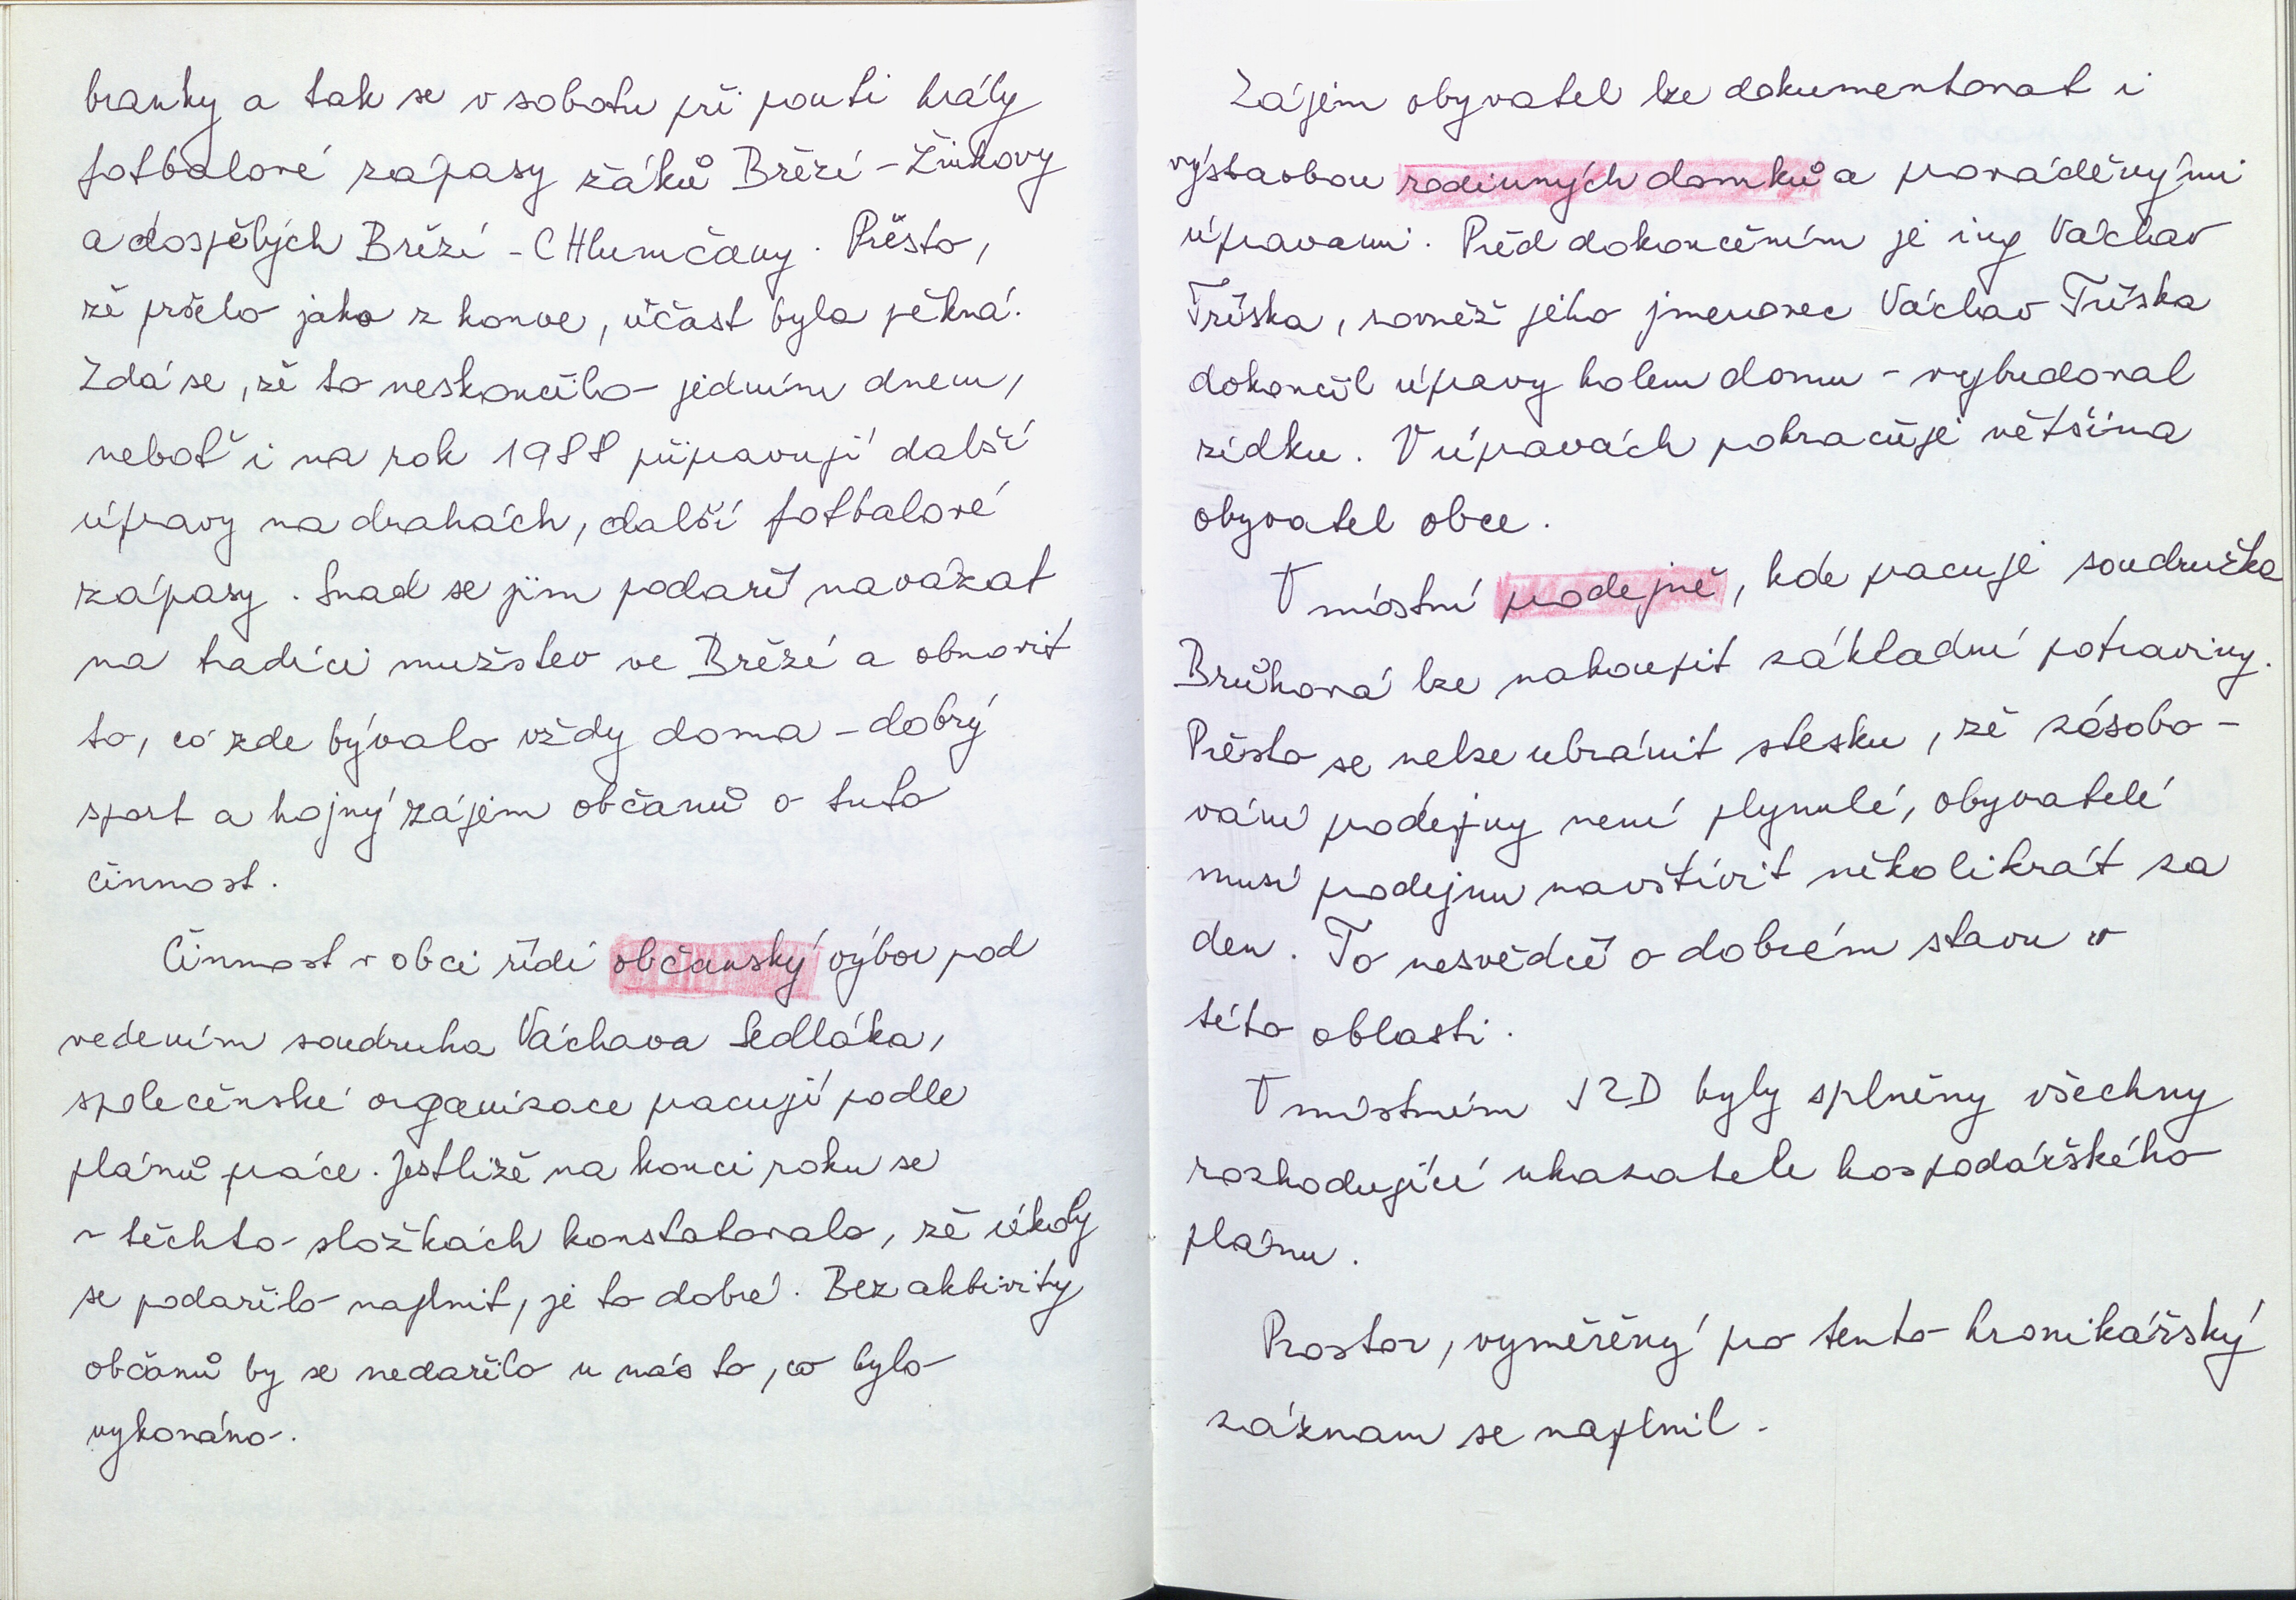 branky a tak se v sobotu při pouti hrály
fotbalové zápasy žáků Březí - Žinkovy
a dospělých Březí - CHlumčany. Přesto,
že pršelo jako z konve, účast byla pěkná.
Zdá se, že to neskončilo jedním dnem,
neboť i na rok 1988 připravují další
úpravy na drahách, další fotbalové
zápasy. Snad se jim podaří navázat
na tradici mužstev ve Březí a obnovit
to, co zde bývalo vždy doma - dobrý
sport a hojný zájem občanů o tuto
činnost.
Činnost v obci řídí občanský výbor pod
vedením soudruha Václava Sedláka,
společenské organizace pracují podle
plánů práce. Jestliže na konci roku se
v těchto složkách konstatovalo, že úkoly
se podařilo naplnit, je to dobré. Bez aktivity
občanů by se nedařilo u nás to, co bylo
vykonáno.
Zájem obyvatel lze dokumentovat i
výstavbou rodinných domků a prováděnými
úpravami. Před dokončením je ing Václav
Tříska, rovněž jeho jmenovec Václav Tříska
dokončil úpravy kolem domu - vybudoval
zídku. V úpravách pokračuje většina
obyvatel obce.
V místní prodejně, kde pracuje soudružka
Brůhová lze nakoupit základní potraviny.
Přesto se nelze ubránit stesku, že zásobo-
vání prodejny není plynulé, obyvatelé
musí prodejnu navštívit několikrát za
den. To nesvědčí o dobrém stavu v
této oblasti.
V místním JZD byly splněny všechny
rozhodující ukazatele hospodářského
plánu.
Prostor, vyměřený pro tento kronikářský
záznam se naplnil.